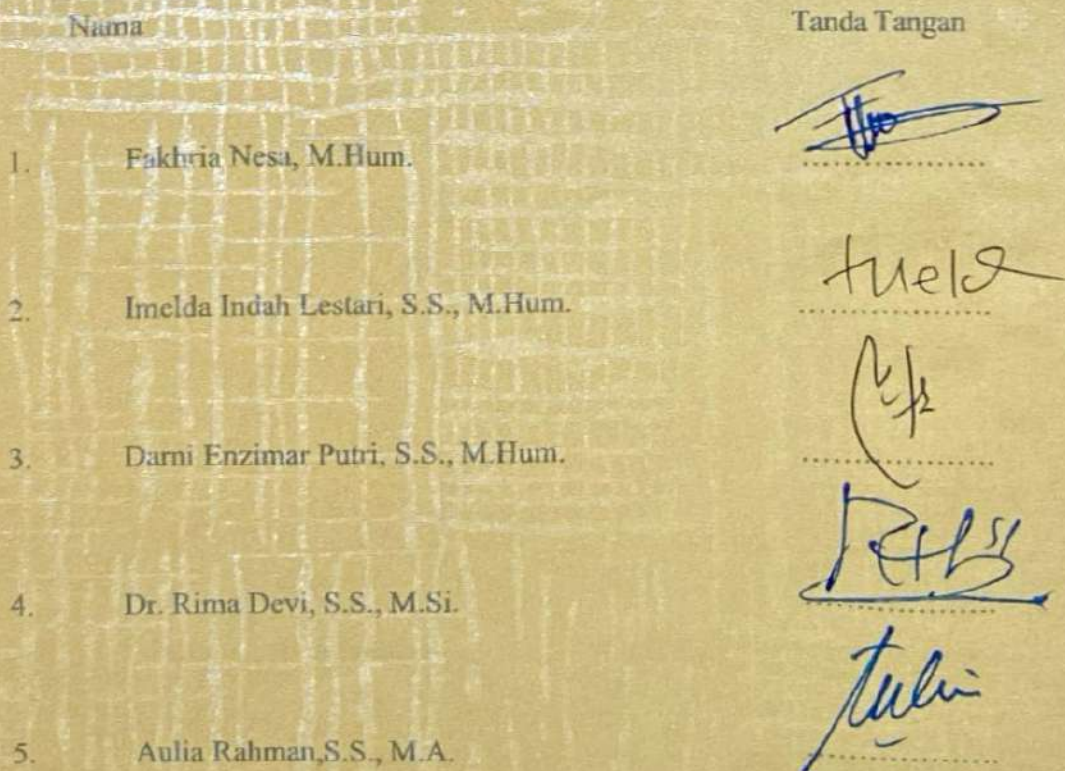 Nama Tanda Tangan
1. Fakhria Nesa, M.Hum.
2. Imelda Indah Lestari, S.S., M.Hum.
3. Darni Enzimar Putri, S.S., M.Hum.
4. Dr. Rima Devi, S.S., M.Si.
5. Aulia Rahman,S.S., M.A.